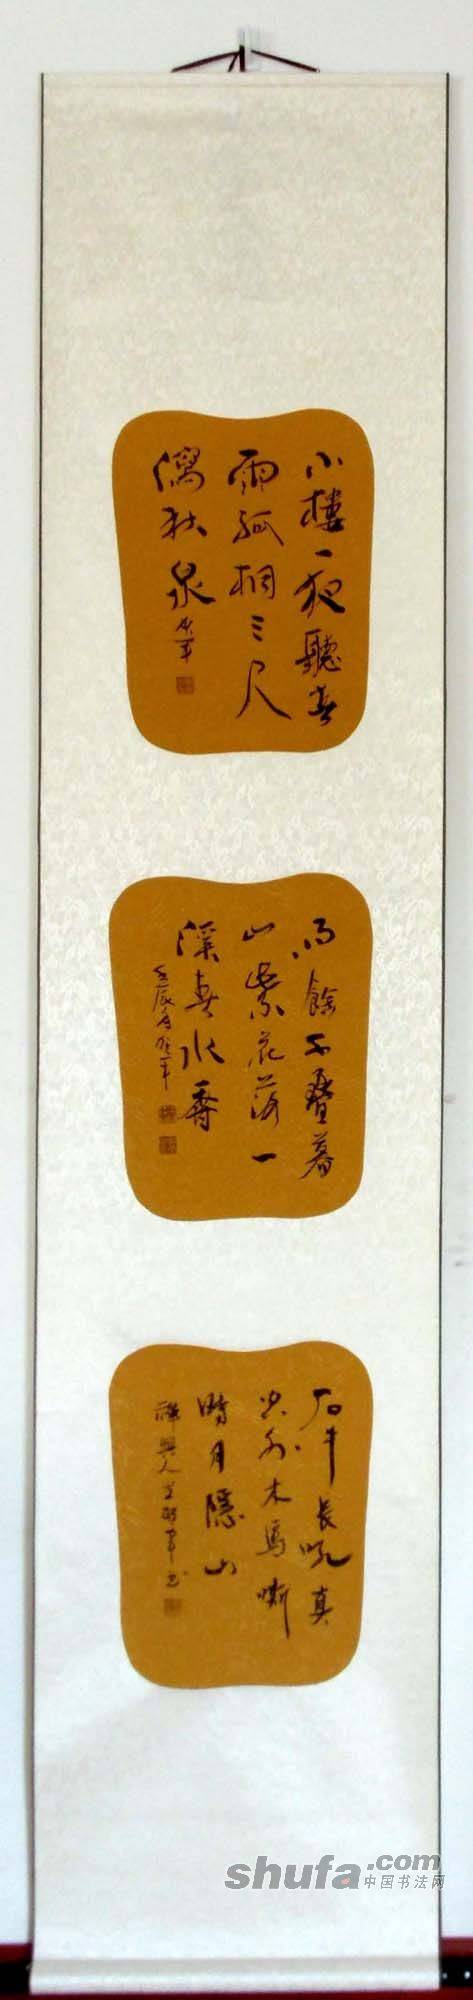 小楼一夜聽春
雨孤桐三尺
瀉秋泉
雨餘千疊暮
山紫花落一
溪春水香
壬辰
石牛長吼真
空外木馬嘶
時月隱山
shufa.com
中国书法网